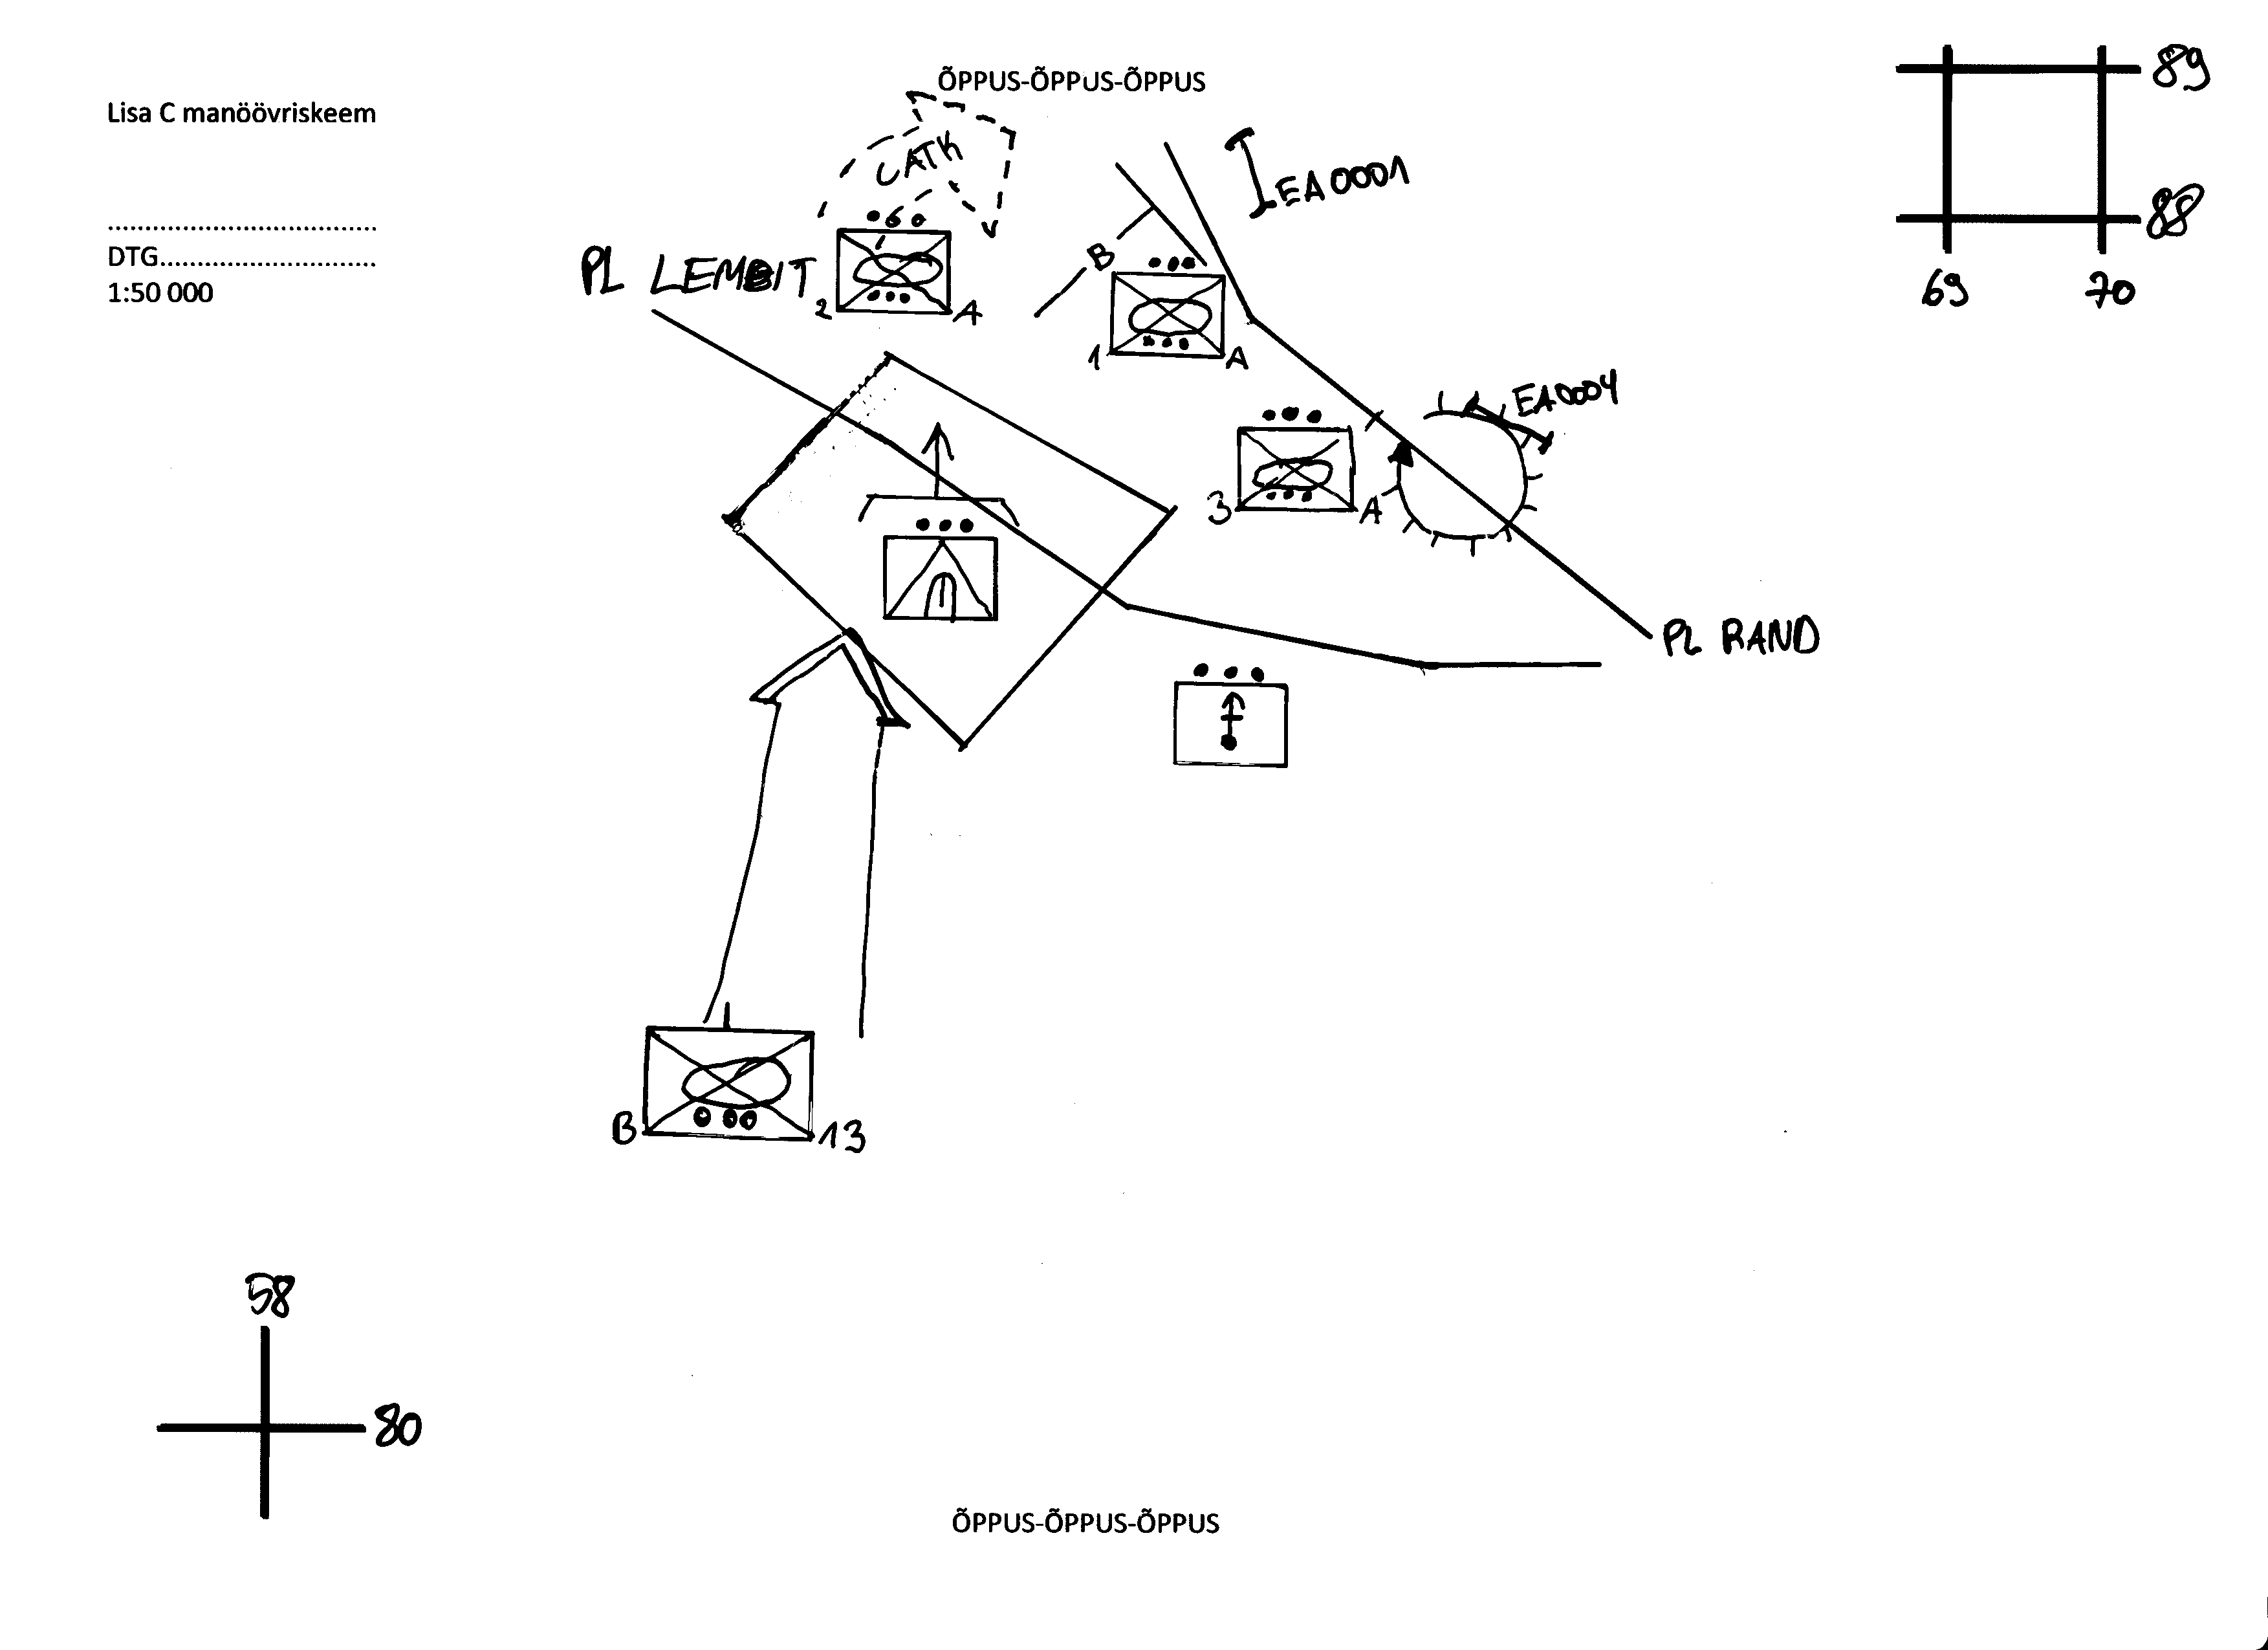 ÕPPUS-ÕPPUS-ÕPPUS
Lisa C manöövriskeem
DTG
1:50 000
89
88
69
70
CATK
EA0001
PL LEMBIT
2
A
B
1
A
EA0004
3
A
PL RAND
B
13
58
80
ÕPPUS-ÕPPUS-ÕPPUS